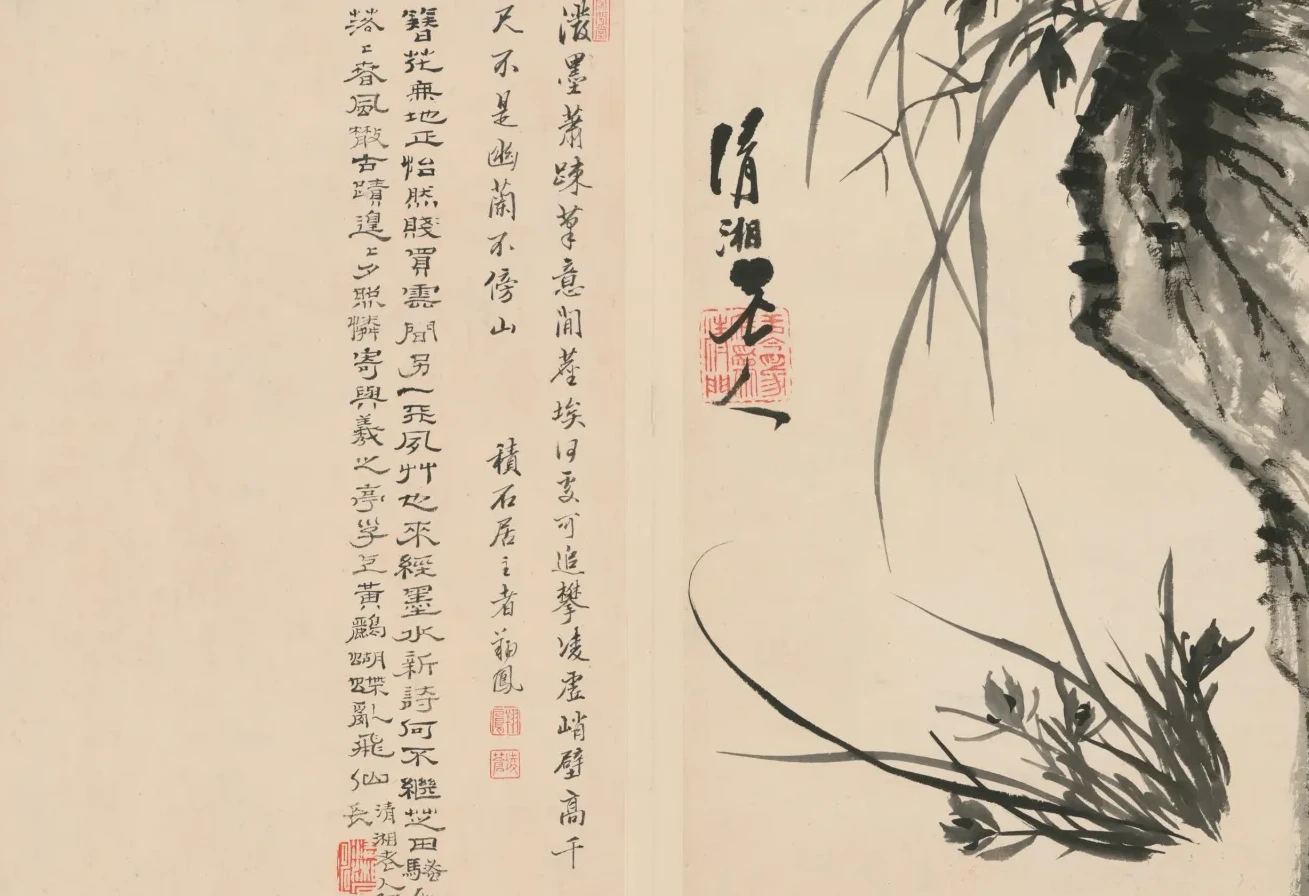 清湘老人
潑墨蕭疎筆意閒塵埃何處可追攀凌虛峭壁高千
尺不是幽蘭不傍山
積石居主者翔鳳
簪花無地正怡然賤買雲間另一天夙艸也來經墨水新詩何不繼芝田騷
落〻春風散古蹟遑〻夕照憐寄與羲之亭黃鸝蝴蝶亂飛仙
清湘老人
長